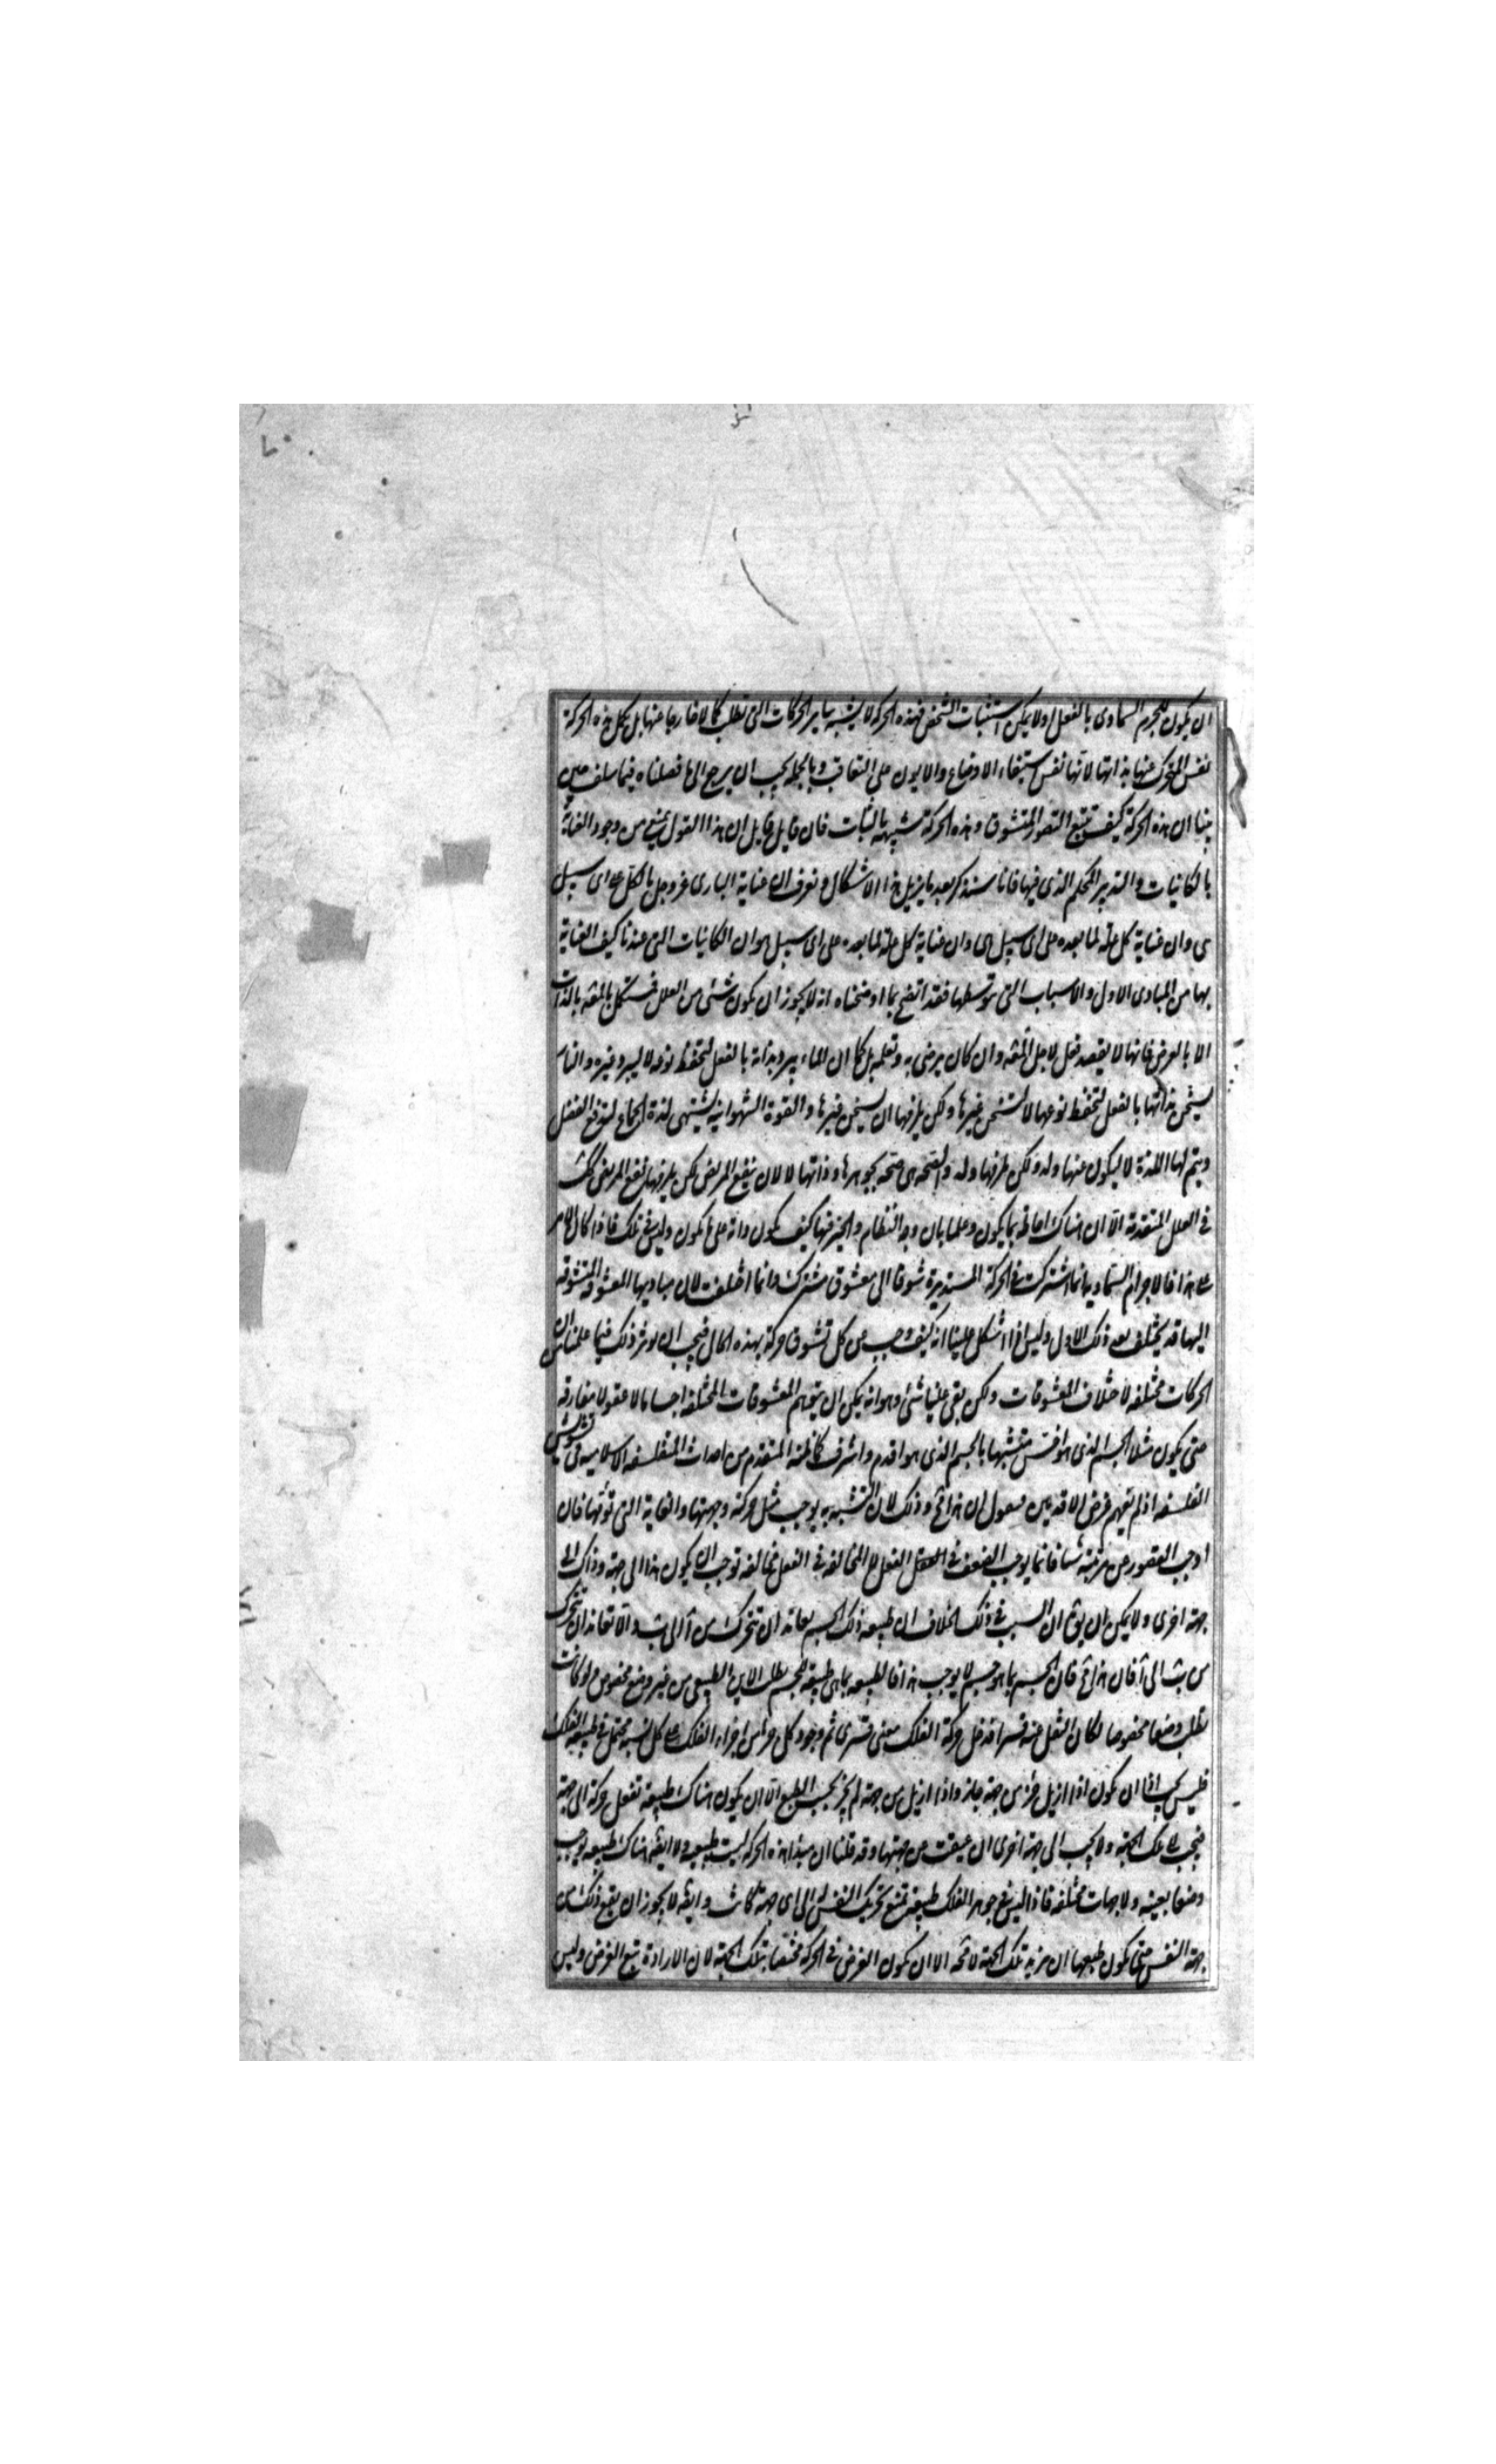 ان يكون للجرم السماوى بالفعل اولا يمكن استثبات الشخص فهذه الحركة لا يشبه ساير الحركات التى تطلب كمالا خارجا عنها بل تكمل هذه الحركة
نفس المتحرك عنها بذاتها لانها نفس استبقاء الاوضاع والايون على التعاقب وبالجملة يجب ان يرجع الى ما فصلناه فيما سلف حين
بينا ان هذه الحركة كيف تتبع التصور المتشوق وهذه الحركة شبيهه بالثبات فان قايل قايل ان هذا القول يمنع من وجود العناية
بالكاينات والتدبير المحكم الذى فيها فانا سنذكر بعد ما يزيل هذا الاشكال ونعرف ان عناية البارى عز وجل بالكل على اى سبيل
هى وان عناية كل علة لما بعده على اى سبيل هى وان عناية كل علة لما بعده على اى سبيل هو ان الكاينات التى عندنا كيف العناية
بها من المبادى الاول والاسباب التى توسطها فقد اتضح بما اوضحناه انه لا يجوز ان يكون شئ من العلل يستكمل بالمعلول بالذات
الا بالعرض فانها لا يقصد فعل لاجل المعلول وان كان يرضى به وتعلمه بل كما ان الماء يبرد بذاته بالفعل لتحفظ نوعه لا ليبرد غيره والنار
يسخن بذاتها بالفعل لتحفظ نوعها لا لتسخن غيرها ولكن يلزمها ان يسخن غيرها والقوة الشهوانية يشتهى لذة الجماع لتدفع الفضل
ويتم لها اللذة لا ليكون عنها ولد ولكن يلزمها ولد والصحة هى صحة بجوهرها وذاتها لا لان ينفع المريض لكن يلزمها نفع المريض كذلك
فى العلل المتقدمة الا ان هناك احاطة بما يكون وعلما بان وجه النظام والخير فيها كيف يكون وانه على ما يكون وليس فى تلك فاذا كان الامر
على هذا فالاجرام السماوية انما اشتركت فى الحركة المستديرة شوقا الى معشوق مشترك وانما اختلفت لان مباديها المعشوقة المتشوقة
اليها قد يختلف بعد ذلك الاول وليس اذا اشكل علينا انه كيف وجب عن كل تشوق حركة بهذه الحال فيجب ان يوثر ذلك فيما علمنا من ان
الحركات مختلفه لاختلاف المعشوقات ولكن بقى علينا شئ وهو انه يمكن ان يتوهم المعشوقات المختلفه اجساما لا عقولا مفارقه
حتى يكون مثلا الجسم الذى هو اخس متشبها بالجسم الذى هو اقدم واشرف كما ظنه المتقدم من احداث المتفلسفه الاسلاميه فى تشويش
الفلسفه اذ لم يفهم غرض الاقدمين فنقول ان هذا مح وذلك لان التشبه به يوجب مثل حركته وجهتها والغاية التى تومها فان
اوجب القصور عن مرتبته شيئا فانما يوجب الضعف فى الفعل لا المخالفه فى الفعل مخالفه توجب ان يكون هذا الى جهة وذاك الى
جهة اخرى ولا يمكن ان يقال ان السبب فى ذلك الخلاف ان طبيعه ذلك الجسم يعاند ان يتحرك من آ الى ب ولا تعاند ان يتحرك
من ب الى آ فان هذا مح فان الجسم بما هو جسم لا يوجب هذا فالطبيعه بما هى طبيعه للجسم يطلب الاين الطبيعى من غير وضع مخصوص ولو كانت
تطلب وضعا مخصوصا لكان النقل عنه قسرا فدخل حركة الفلك معنى قسرى ثم وجود كل جزء من اجزاء الفلك على كل نسبه محتمل فى طبيعه الفلك
فليس يجب اذا ان يكون اذا ازيل جزء من جهة جاز واذا ازيل من جهة لم يجز بحسب الطبع الا ان يكون هناك طبيعه تفعل حركة الى جهة
فيجب الى تلك الجهة ولا يجب الى جهة اخرى ان عيقت عن جهتها وقد قلنا ان مبدا هذه الحركه ليست طبيعيه ولا ايضا هناك طبيعه توجب
وضعا بعينه ولا جهات مختلفه فاذا ليس فى جوهر الفلك طبيعه تمنع تحريك النفس له الى اى جهة كانت وايضا لا يجوز ان يقع ذلك من
جهة النفس حتى يكون طبعها ان يريد تلك الجهة لا محه الا ان يكون الغرض فى الحركة مختصا بتلك الجهة لان الارادة تتبع الغرض وليس